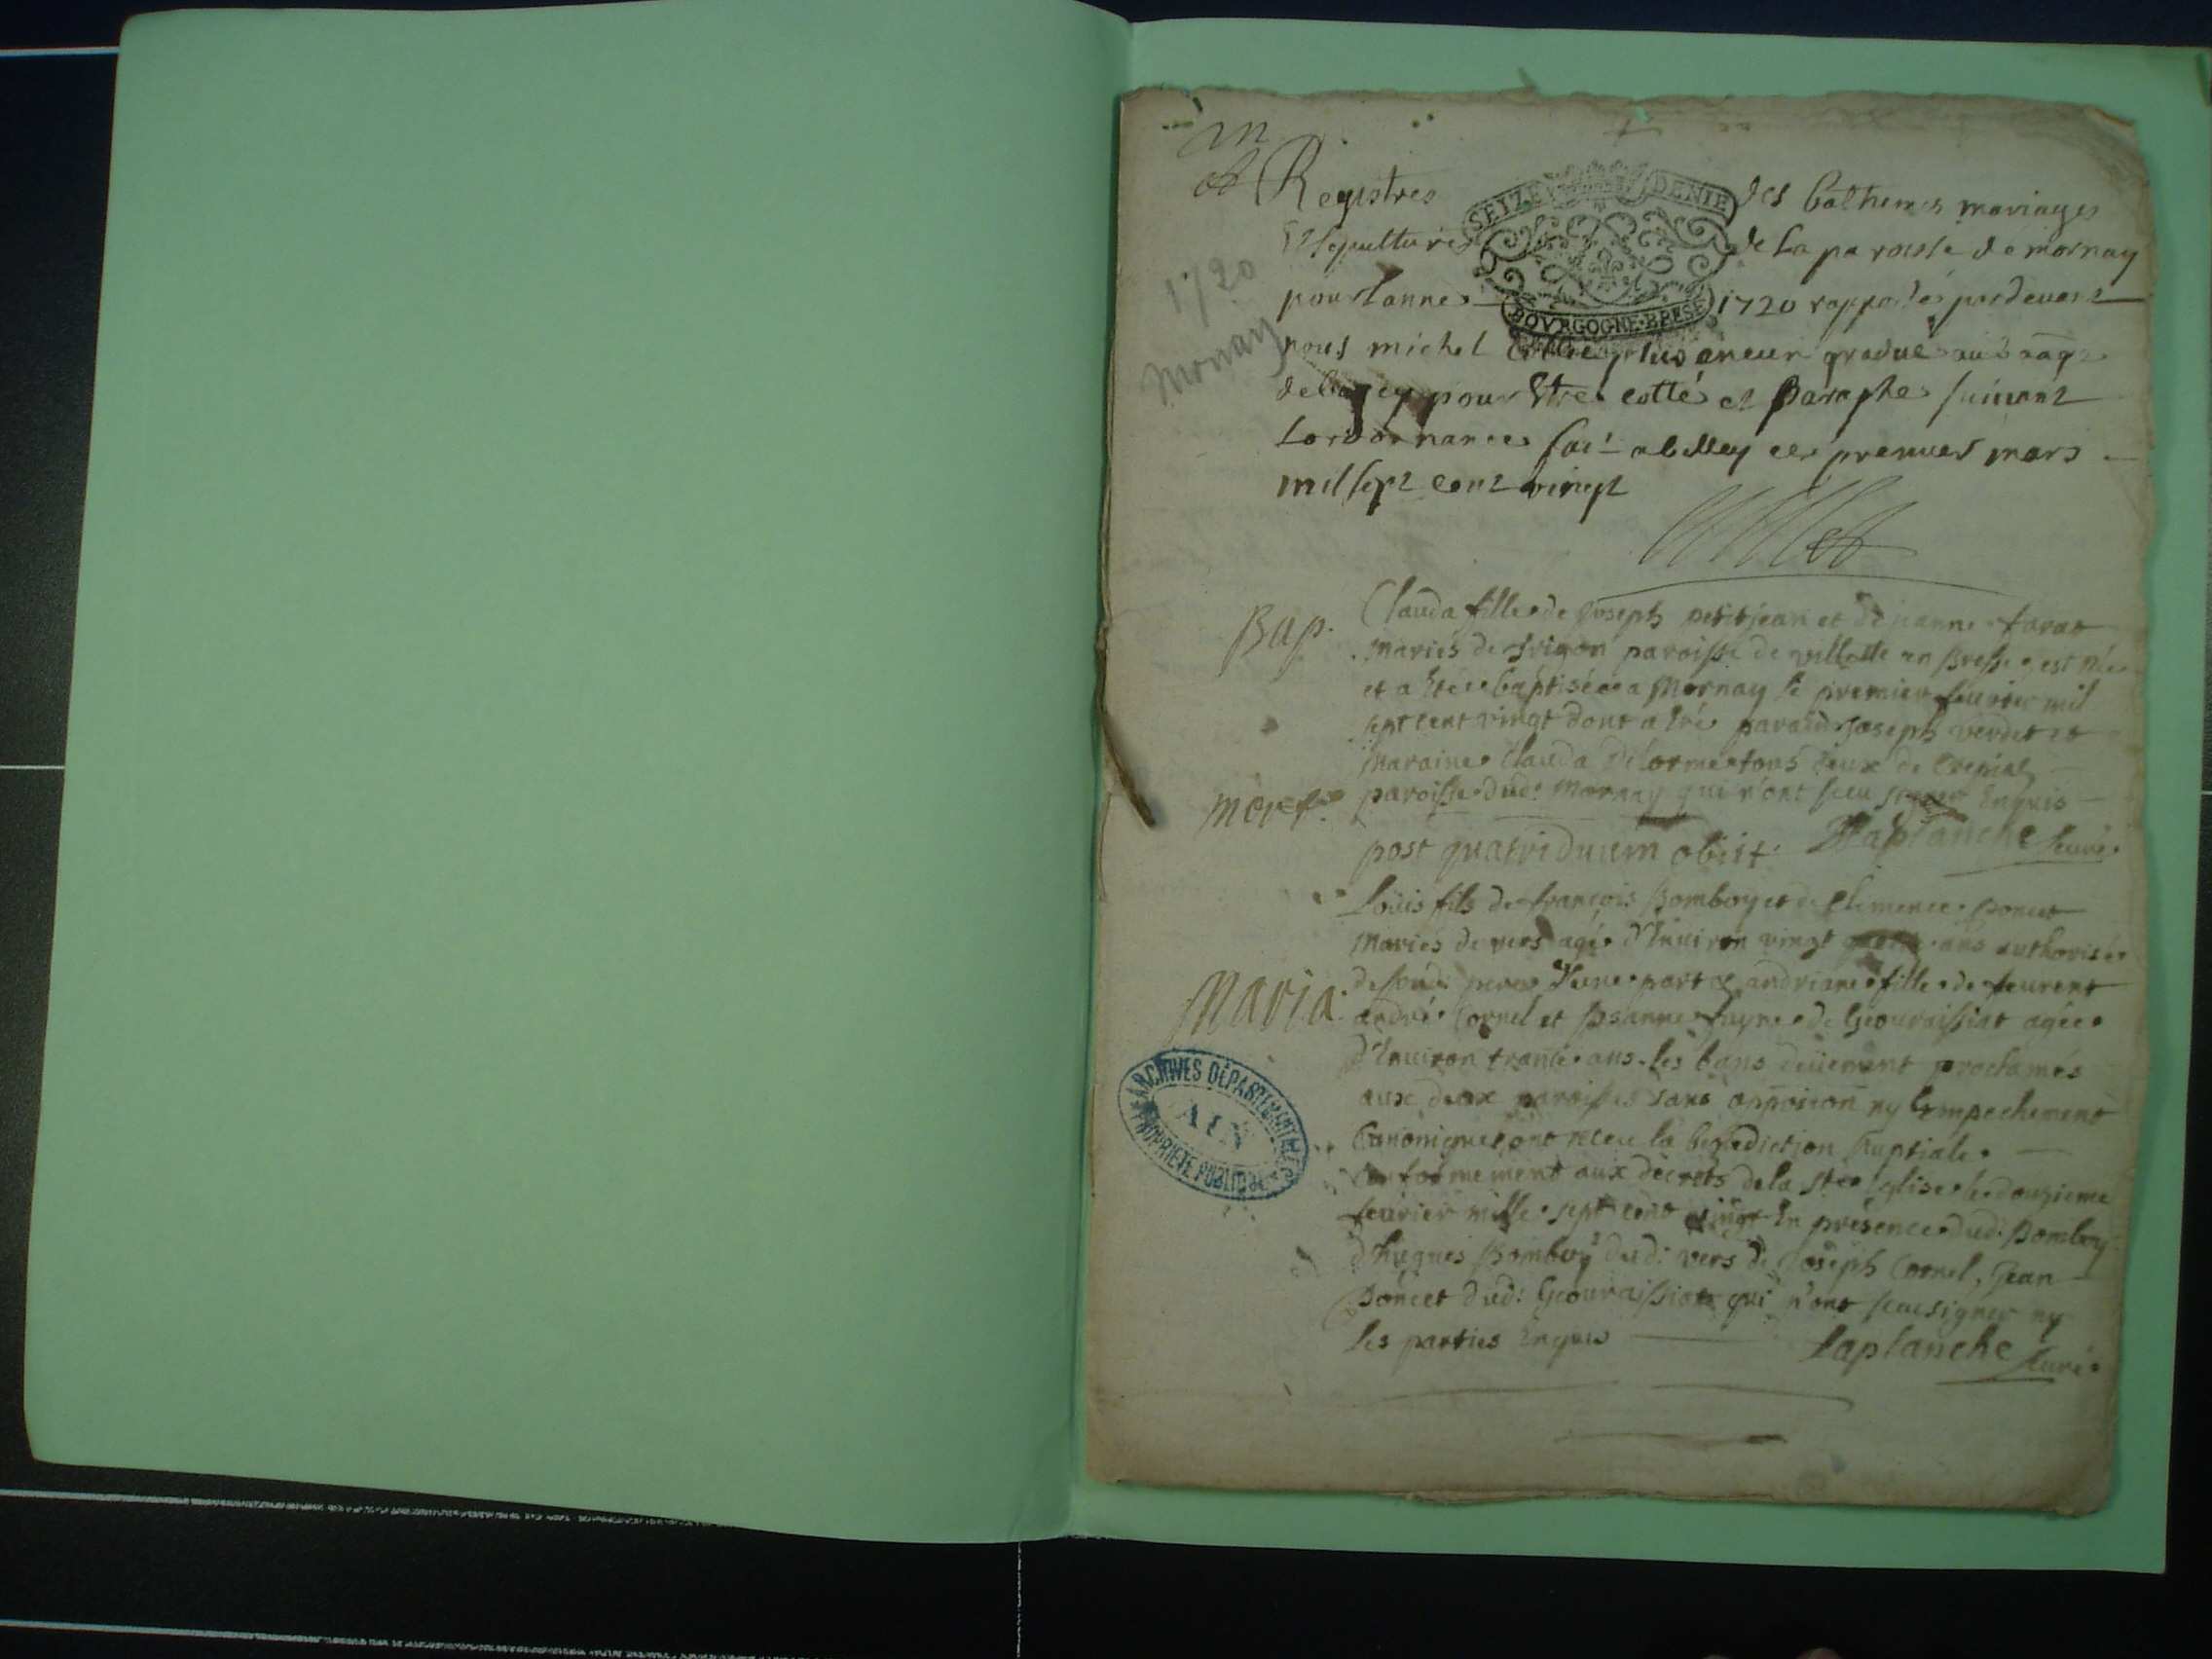 Registres des bathemes mariages
et sepultures de La paroisse de mornay
pour Lannee 1720 rapportés pardevant
nous michel plus ancien gradué au
pour Etre cottés et Paraphes suivant
Lordonnance fait a ce premier mars
mil sept cent vingt
1720
Mornay
SEIZE DENIE
BOVRGOGNE·BRESSE
Bap.
Clauda fille de Joseph petitjean et de
mariés de paroisse de villette en Bresse est née
et a Eté baptisée a Mornay le premier feurier mil
sept cent vingt dont a Eté parain Joseph verdet et
maraine Clauda Delorme tous deux de Crepiat
paroisse dud: Mornay qui n'ont sceu signer Enquis
Mort.
post quatriduum obiit. Laplanche Curé
Louis fils de françois Bomboy et de Clemence Poncet
mariés de vers agé d'Enuiron vingt ans authorisé
de soud: pere d'une part et andriane fille de
andré Cornel et de Geouraissiat agée
Maria.
d'Enuiron trante ans les bans proclamés
aux deux paroisses sans opposition ny Empechement
Canonique ont receu la benediction Nuptiale
Conformement aux decrets de la Ste Eglise le douzieme
feurier mille sept cent vingt En présence dud: Bomboy
d'hugues Bomboy dud: vers de Joseph Cornel, Jean
Poncet dud: Geouraissiat qui n'ont sceu signer ny
les parties Enquis Laplanche Curé
ARCHIVES DÉPARTEMENTALES
AIN
PROPRIÉTÉ PUBLIQUE